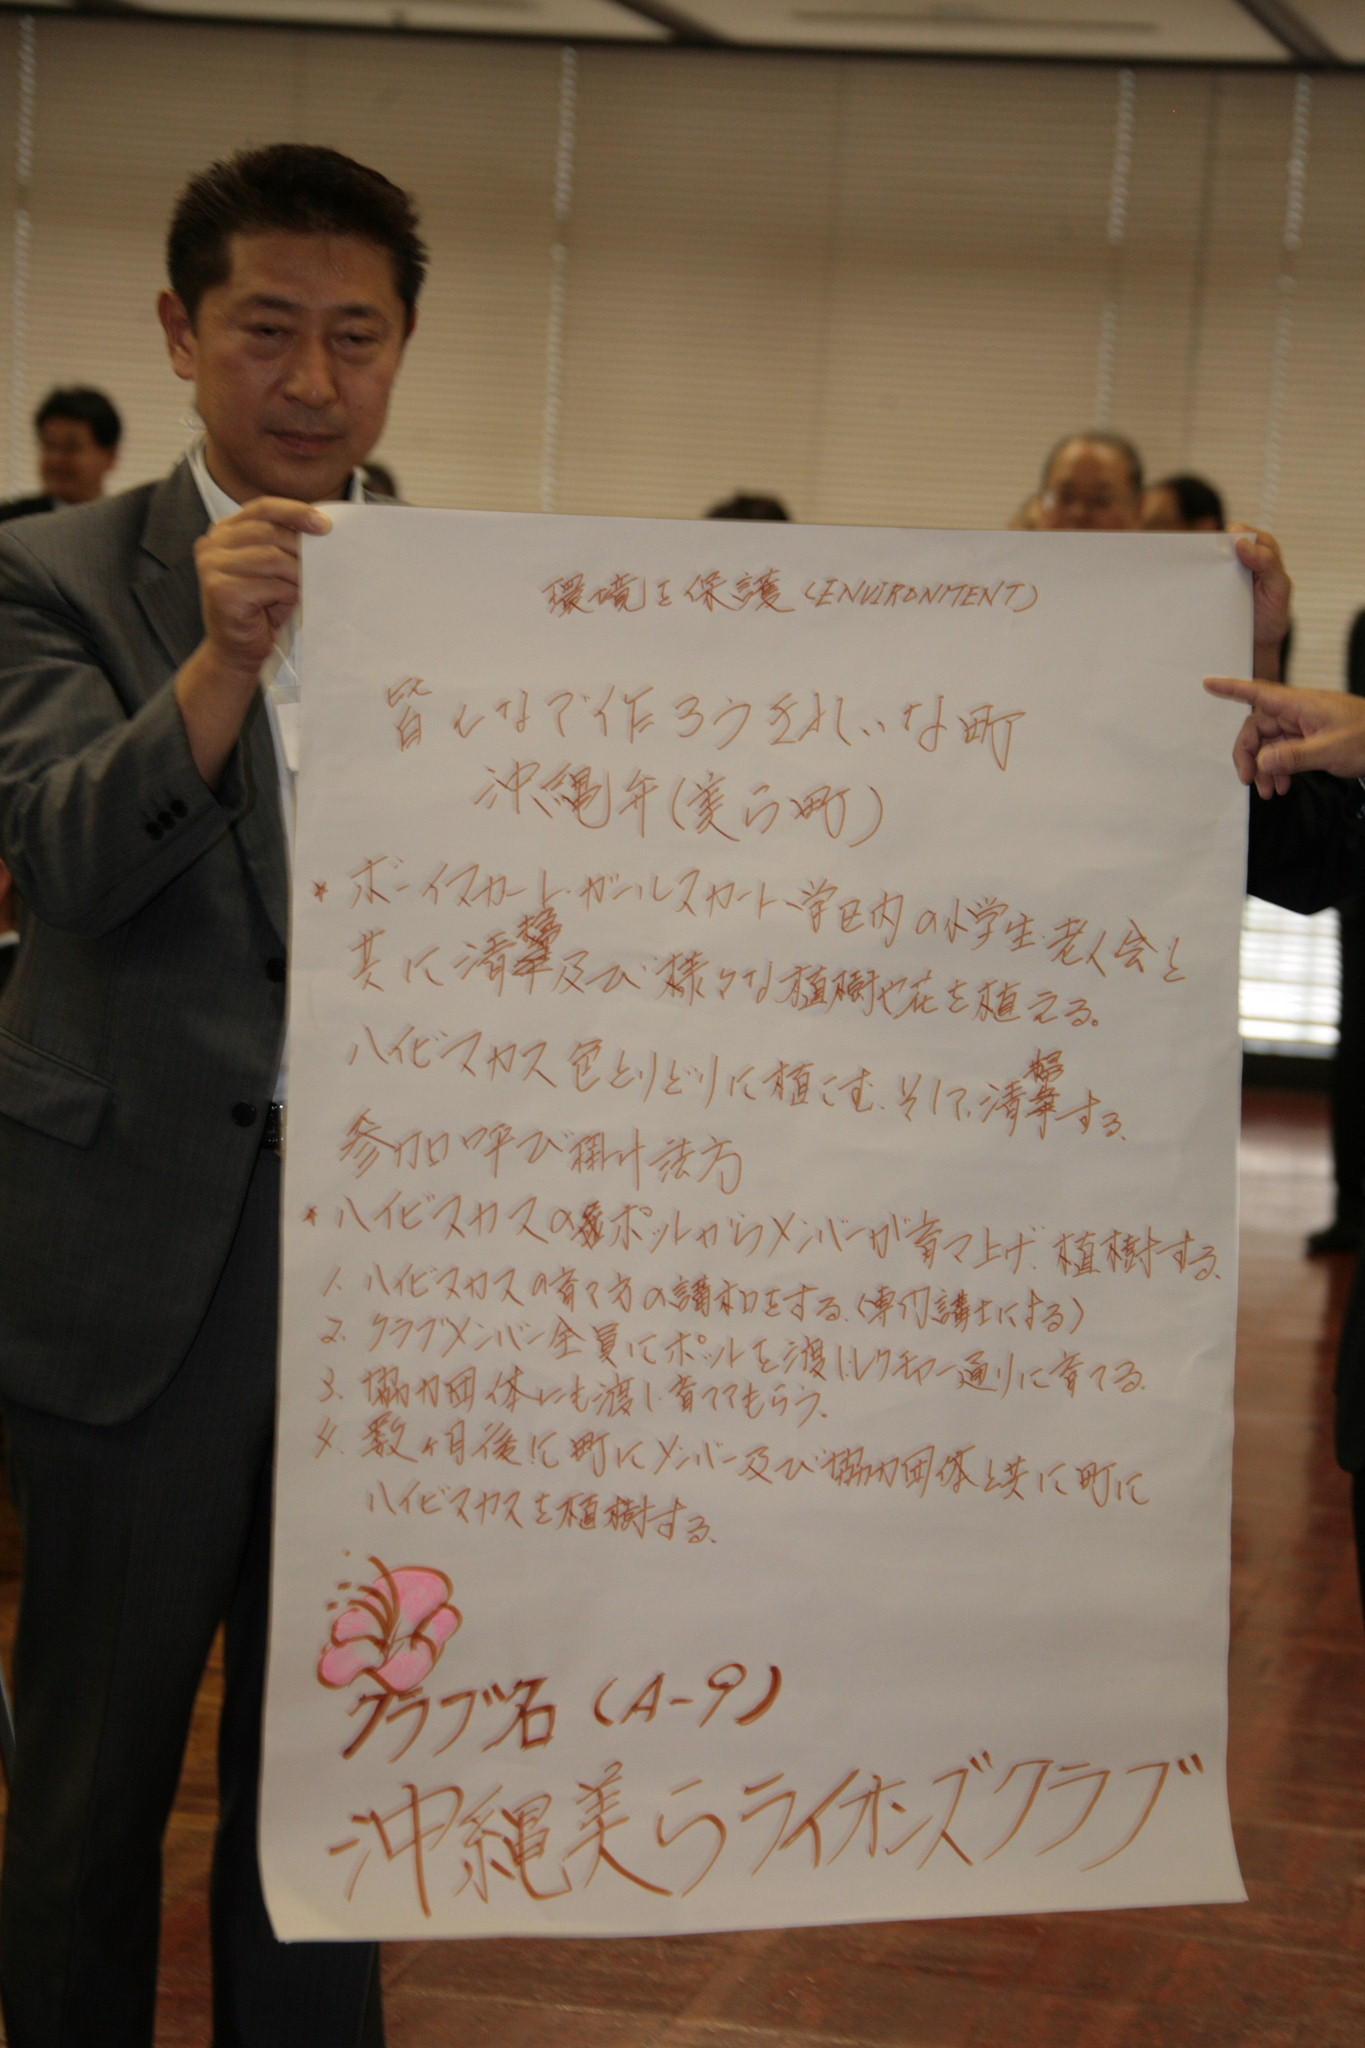 環境を保護(ENVIRONMENT)
皆んなで作ろうきれいな町
沖縄年(美ら町)
* ボーイスカート・ガールスカート、学区内の小学生・老人会と
共に清掃及び様々な植樹や花を植える。
ハイビスカス色とりどりに植こむ、そして、清掃する、
参加呼び掛け法方
* ハイビスカスのポットからメンバーが育て上げ、植樹する、
1. ハイビスカスの育て方の講和をする、(専門講士にる)
2. クラブメンバー全員にポットを渡しレクチャー通りに育てる、
3. 協力団体にも渡し育ててもらう、
4. 数ヶ月後に町にメンバー及び協力団体と共に町に
ハイビスカスを植樹する、
クラブ名 (A-9)
沖縄美らライオンズクラブ